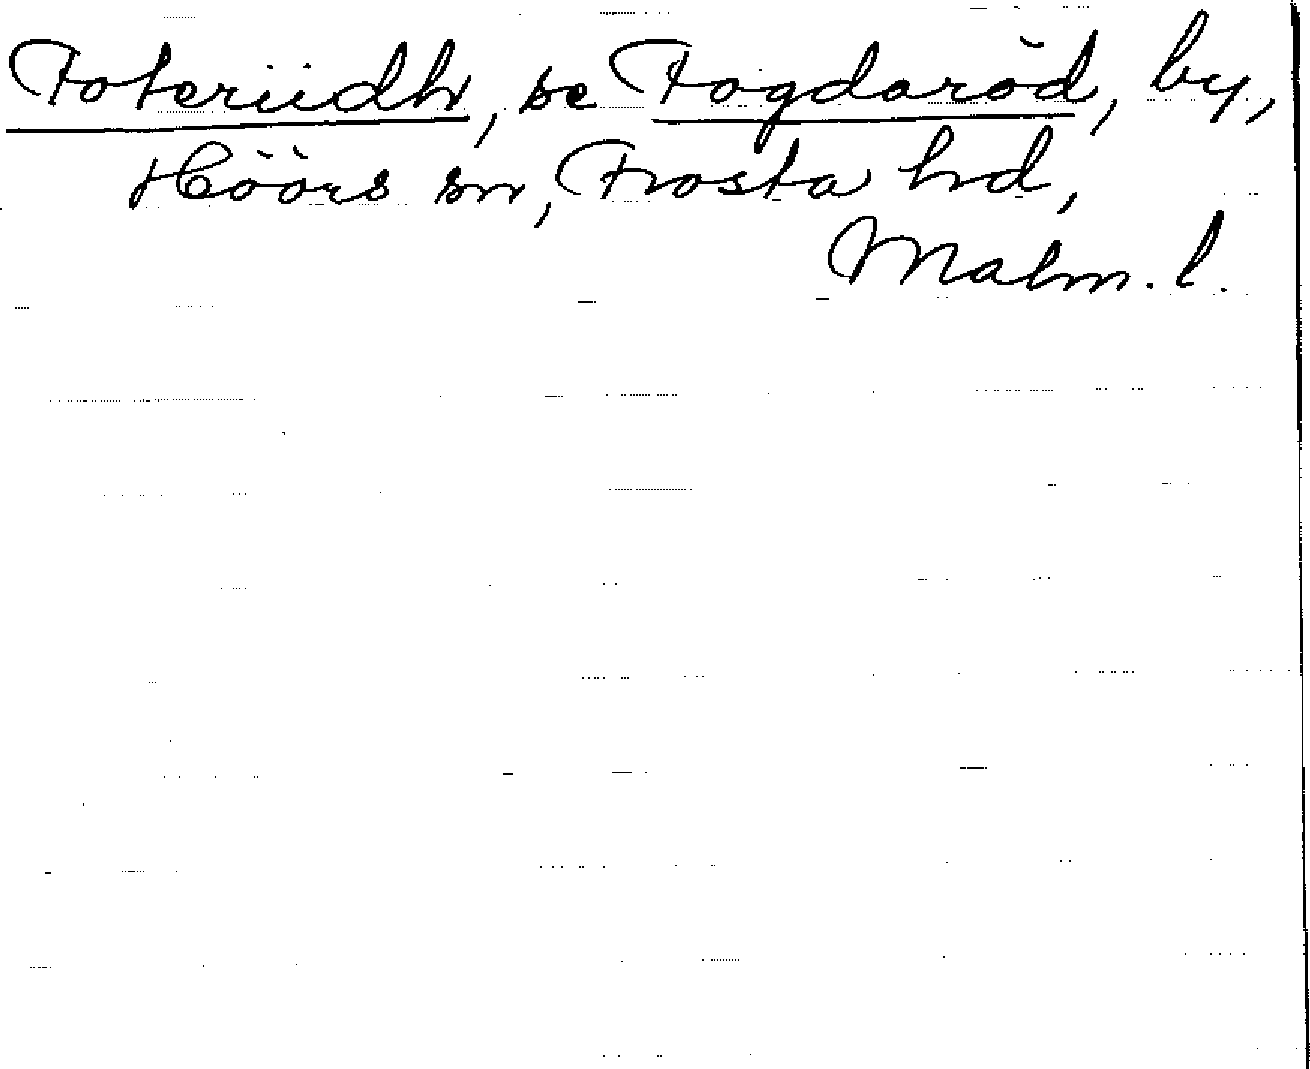 Foteriidh, se Fogdaröd, by,
Höörs sn, Frosta hd,
Malm. l.